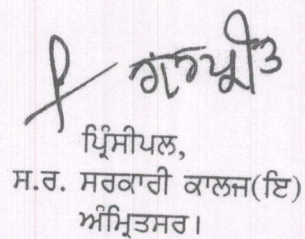 ਗੁਰਪ੍ਰੀਤ
ਪ੍ਰਿੰਸੀਪਲ,
ਸ.ਰ. ਸਰਕਾਰੀ ਕਾਲਜ(ਇ)
ਅੰਮ੍ਰਿਤਸਰ।